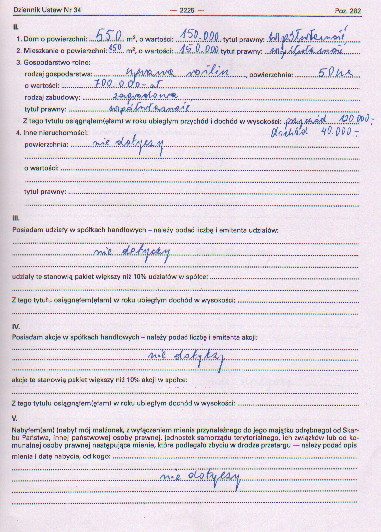 Dziennik Ustaw Nr 34 — 2226 — Poz. 282
II.
1. Dom o powierzchni: 550 m², o wartości: 150.000 tytuł prawny: współwłasność
2. Mieszkanie o powierzchni: 850 m², o wartości: 150.000 tytuł prawny: współwłasność
3. Gospodarstwo rolne:
rodzaj gospodarstwa: uprawa roślin, powierzchnia: 50 ha
o wartości: 700.000 zł
rodzaj zabudowy: zagrodowa
tytuł prawny: współwłasność
Z tego tytułu osiągnąłem(ęłam) w roku ubiegłym przychód i dochód w wysokości: przychód 120.000,-
dochód 40.000-
4. Inne nieruchomości:
powierzchnia: nie dotyczy
o wartości:
tytuł prawny:
III.
Posiadam udziały w spółkach handlowych – należy podać liczbę i emitenta udziałów:
nie dotyczy
udziały te stanowią pakiet większy niż 10% udziałów w spółce:
Z tego tytułu osiągnąłem(ęłam) w roku ubiegłym dochód w wysokości:
IV.
Posiadam akcje w spółkach handlowych – należy podać liczbę i emitenta akcji:
nie dotyczy
akcje te stanowią pakiet większy niż 10% akcji w spółce:
Z tego tytułu osiągnąłem(ęłam) w roku ubiegłym dochód w wysokości:
V.
Nabyłem(am) (nabył mój małżonek, z wyłączeniem mienia przynależnego do jego majątku odrębnego) od Skar-
bu Państwa, innej państwowej osoby prawnej, jednostek samorządu terytorialnego, ich związków lub od ko-
munalnej osoby prawnej następujące mienie, które podlegało zbyciu w drodze przetargu — należy podać opis
mienia i datę nabycia, od kogo:
nie dotyczy